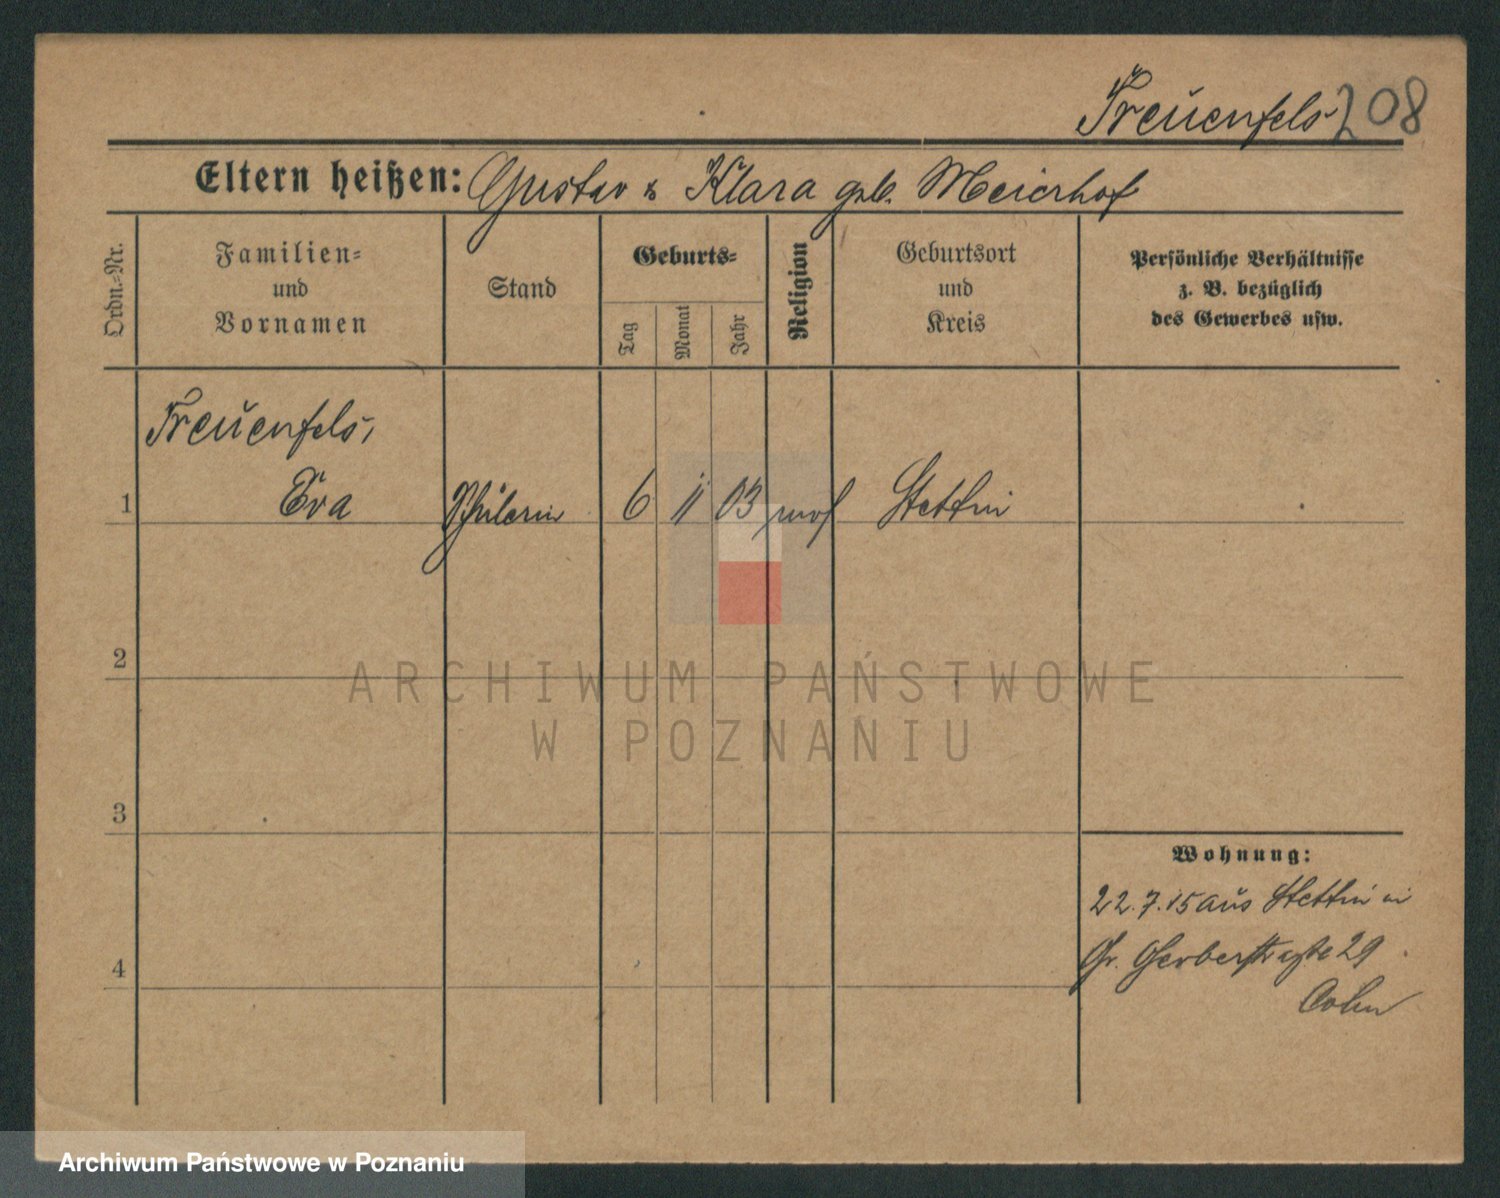 Treuenfels 208
Eltern heißen: Gustav & Klara geb. Meierhof
Ordn.-Nr.
Familien-
und
Vornamen
Stand
Geburts-
Tag
Monat
Jahr
Religion
Geburtsort
und
Kreis
Persönliche Verhältnisse
z. B. bezüglich
des Gewerbes usw.
Treuenfels,
1 Eva Schülerin 6 11 03 mos Stettin
2
ARCHIWUM PAŃSTWOWE
W POZNANIU
3
Wohnung:
22.7.15 aus Stettin in
Gr. Gerberstraße 29
4
Cohn
Archiwum Państwowe w Poznaniu